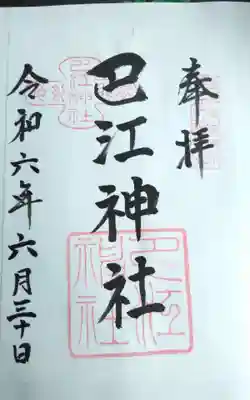 奉拝
巴江神社
令和六年六月三十日
巴江神社